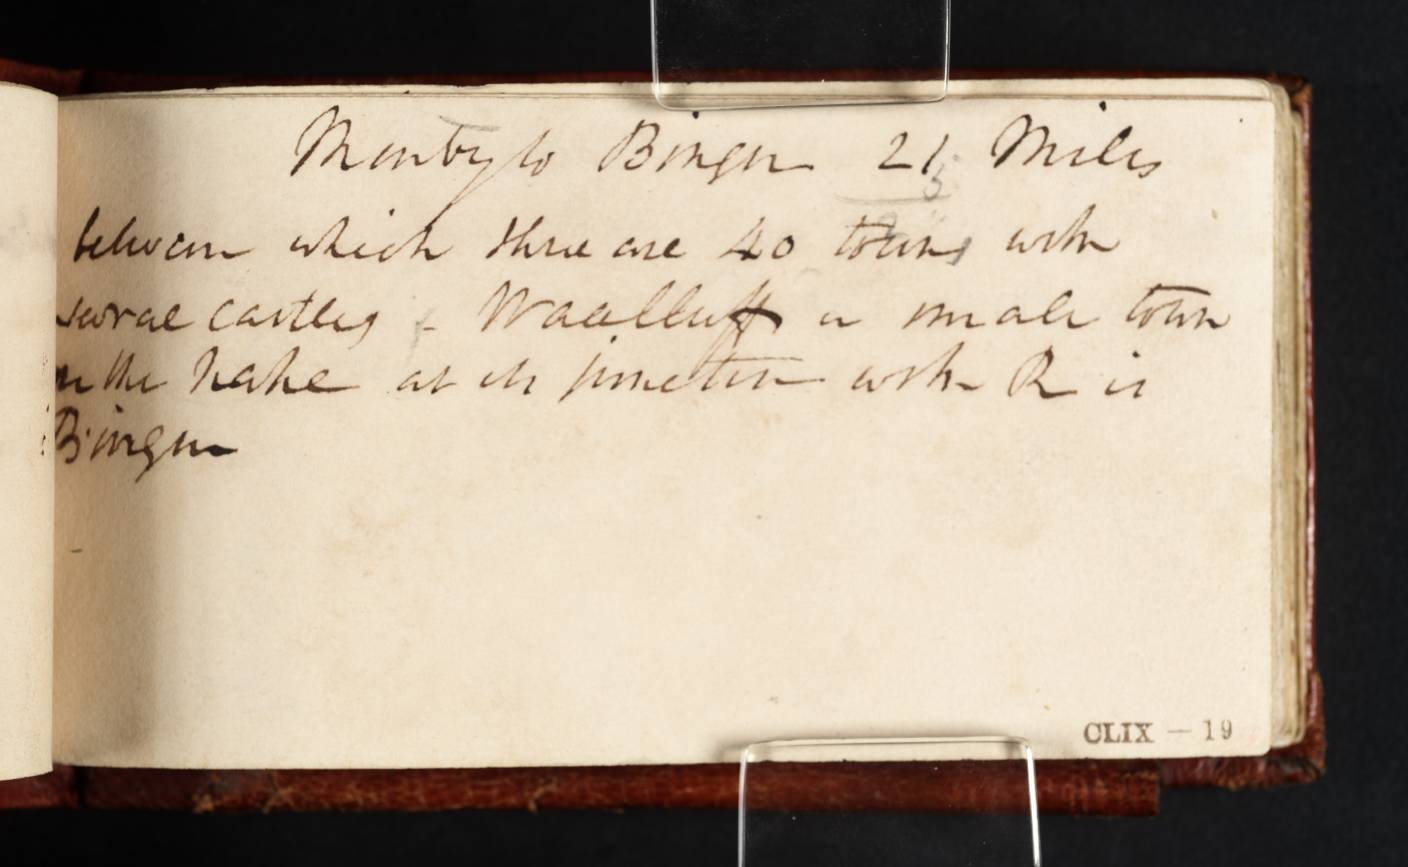 Mentz to Bingen 21 Miles
between which there are 40 towns with
several castles - Waalluff a small town
on the Nahe at its junction with R is
Bingen
CLIX - 19